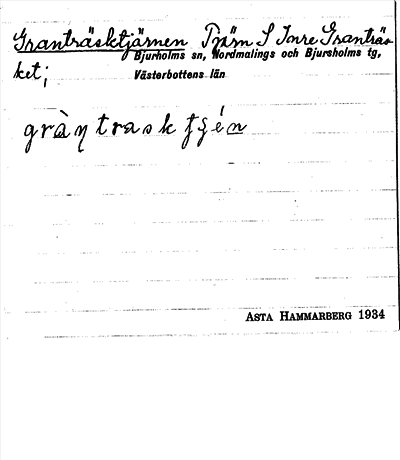 Granträsktjärnen Tjärn S Inre Granträs-
Bjurholms sn, Nordmalings och Bjurholms tg,
ket;
Västerbottens län
ASTA HAMMARBERG 1934